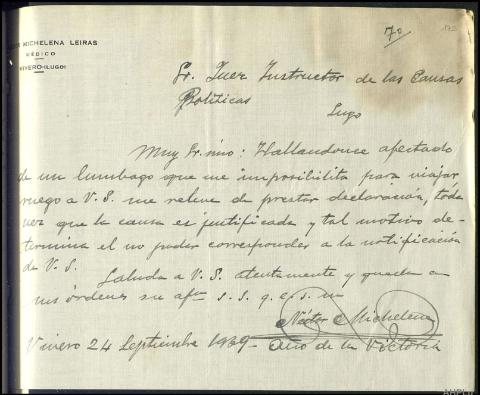 70 172
MICHELENA LEIRAS
MÉDICO
VIVERO-(LUGO)
Sr. Juez Instructor de las Causas
Políticas
Lugo
Muy Sr. mio: Hallandome afectado
de un lumbago que me imposibilita para viajar
ruego a V. S. me releve de prestar declaración, toda
vez que la causa es justificada y tal motivo de-
termina el no poder corresponder a la notificación
de V. S.
Saluda a V. S. atentamente y queda a
sus órdenes su afmo s. s. q. e. s. m
Michelena
Vivero 24 Septiembre 1939 - Año de la Victoria
AHPLU